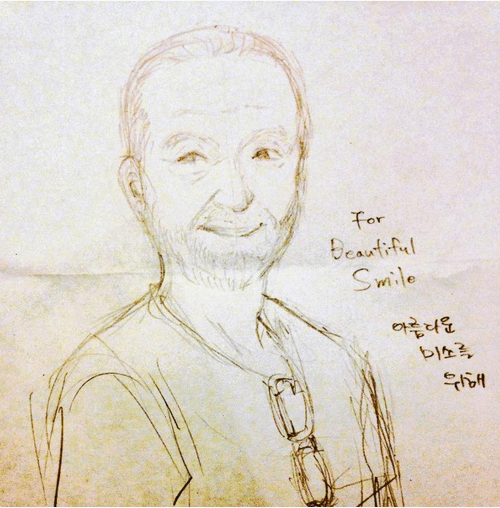 For
Beautiful
Smile
아름다운
미소를
위해